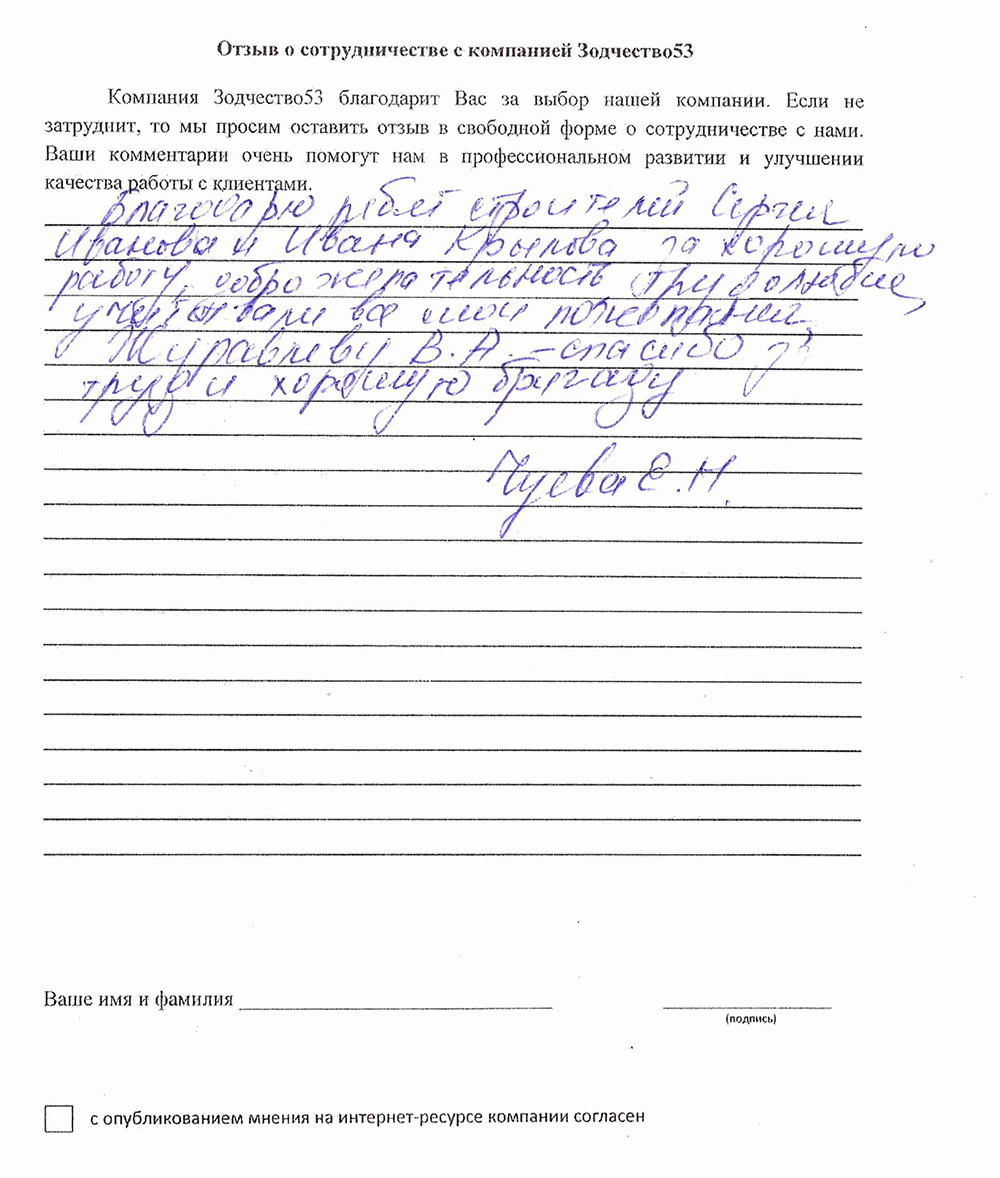 Отзыв о сотрудничестве с компанией Зодчество53
Компания Зодчество53 благодарит Вас за выбор нашей компании. Если не
затруднит, то мы просим оставить отзыв в свободной форме о сотрудничестве с нами.
Ваши комментарии очень помогут нам в профессиональном развитии и улучшении
качества работы с клиентами.
Благодарю ребят строителей Сергея
Иванова и Ивана Крылова за хорошую
работу, доброжелательность трудолюбие,
учитывали все мои пожелания.
Журавлеву В.А. – спасибо за
труд и хорошую бригаду
Чуева Е.Н.
Ваше имя и фамилия
(подпись)
с опубликованием мнения на интернет-ресурсе компании согласен